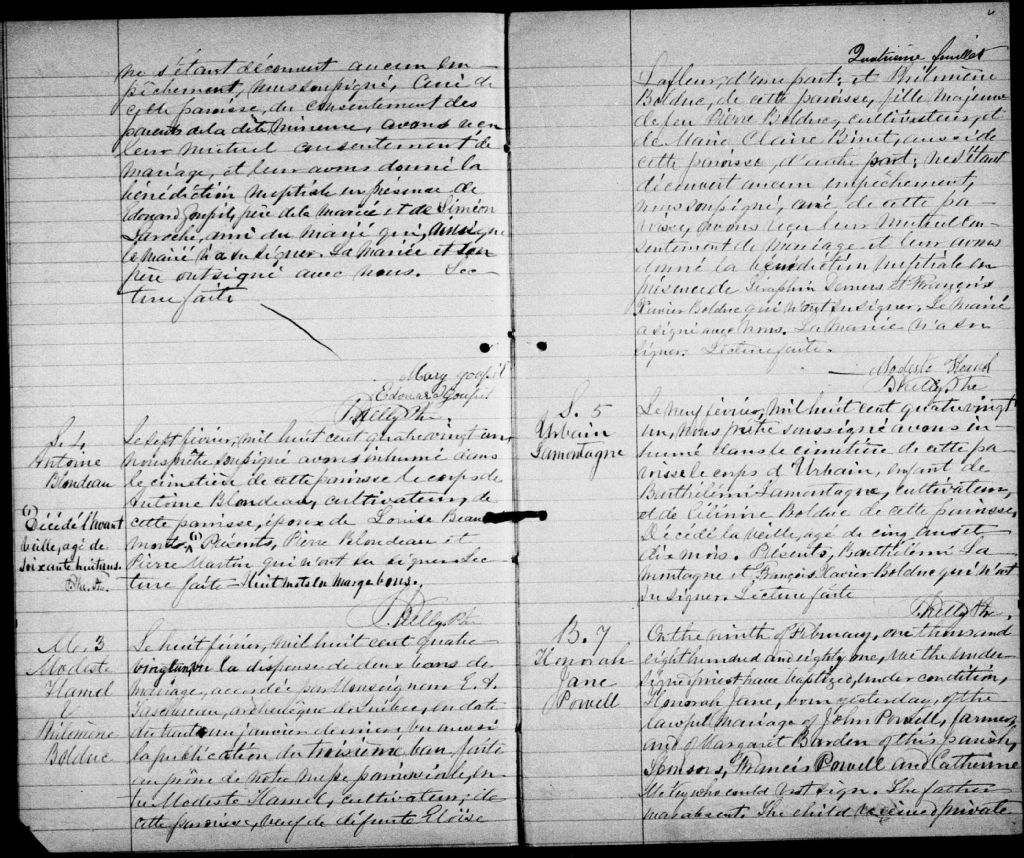 ne s'étant découvert aucun em-
pêchement, nous soussigné, Curé de
cette paroisse, du consentement des
parents de la dite mineure, avons reçu
leur mutuel consentement de
mariage, et leur avons donné la
bénédiction nuptiale en présence de
Edouard Goupil, père de la mariée et de Siméon
Laroche, ami du marié qui, ainsi que
le marié n'a su signer. La mariée et son
père ont signé avec nous. Lec-
ture faite
Mary Goupil
Edouard Goupil
J. Kelly Ptre
S. 4
Antoine
Blondeau
(1)
Décédé l'avant
veille, agé de
soixante huit ans.
Le sept février, mil huit cent quatre vingt un,
nous prêtre soussigné avons inhumé dans
le cimetière de cette paroisse le corps de
Antoine Blondeau, cultivateur, de
cette paroisse, époux de Louise Beau
mont (1) Présents, Pierre Blondeau et
Pierre Martin qui n'ont su signer. Lec-
ture faite. Huit mots en marge bons.
J. Kelly Ptre
M. 3
Modeste
Hamel
&
Philomène
Bolduc
Le huit février, mil huit cent quatre
vingt un, vu la dispense de deux bans de
mariage, accordée par Monseigneur E. A.
Taschereau, archevêque de Québec, en date
du trente un janvier dernier, vu aussi
la publication du troisième ban faite
au prône de notre messe paroissiale, en-
tre Modeste Hamel, cultivateur, de
cette paroisse, veuf de défunte Eloïse
Quatrième feuillet
Lafleur, d'une part; et Philomène
Bolduc, de cette paroisse, fille majeure
de feu Pierre Bolduc, cultivateur, et
de Marie Claire Binet, aussi de
cette paroisse, d'autre part; ne s'étant
découvert aucun empêchement,
nous soussigné, curé de cette pa-
roisse, avons reçu leur mutuel con-
sentement de mariage et leur avons
donné la bénédiction nuptiale en
présence de Séraphin Demers et François
Xavier Bolduc qui n'ont su signer. Le marié
a signé avec nous. La mariée n'a su
signer. Lecture faite.
Modeste Hamel
J. Kelly Ptre
S. 5
Urbain
Lamontagne
Le neuf février, mil huit cent quatre vingt
un, nous prêtre soussigné avons in-
humé dans le cimetière de cette pa-
roisse le corps d'Urbain, enfant de
Barthélémi Lamontagne, cultivateur,
et de Bolduc de cette paroisse.
Décédé la veille, agé de cinq ans et
dix mois. Présents, Barthélémi La
montagne et François Xavier Bolduc qui n'ont
su signer. Lecture faite
J. Kelly Ptre
B. 7
Honorah
Jane
Powell
On the ninth of February, one thousand
eight hundred and eighty one, we the under-
signed priest have baptized, under condition,
Honorah Jane, born yesterday, of the
lawful marriage of John Powell, farmer,
and of Margaret Barden of this parish,
Sponsors, Francis Powell and Catherine
who could not sign. The father
was absent. The child received private